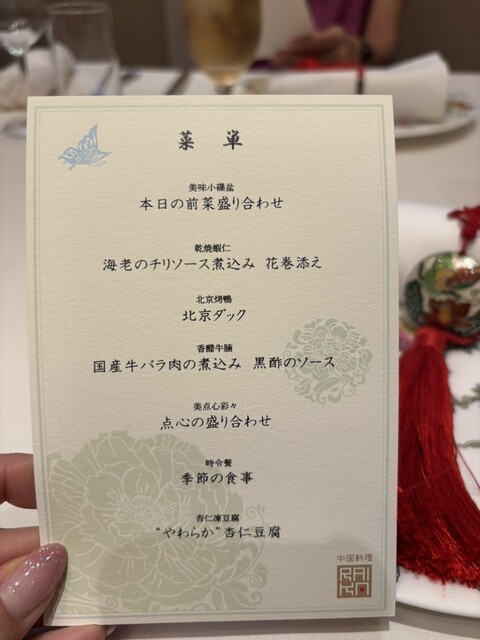 菜単
美味小碟盆
本日の前菜盛り合わせ
乾焼蝦仁
海老のチリソース煮込み 花巻添え
北京烤鴨
北京ダック
香醋牛腩
国産牛バラ肉の煮込み 黒酢のソース
美点心彩々
点心の盛り合わせ
時令餐
季節の食事
杏仁凍豆腐
“やわらか”杏仁豆腐
中国料理